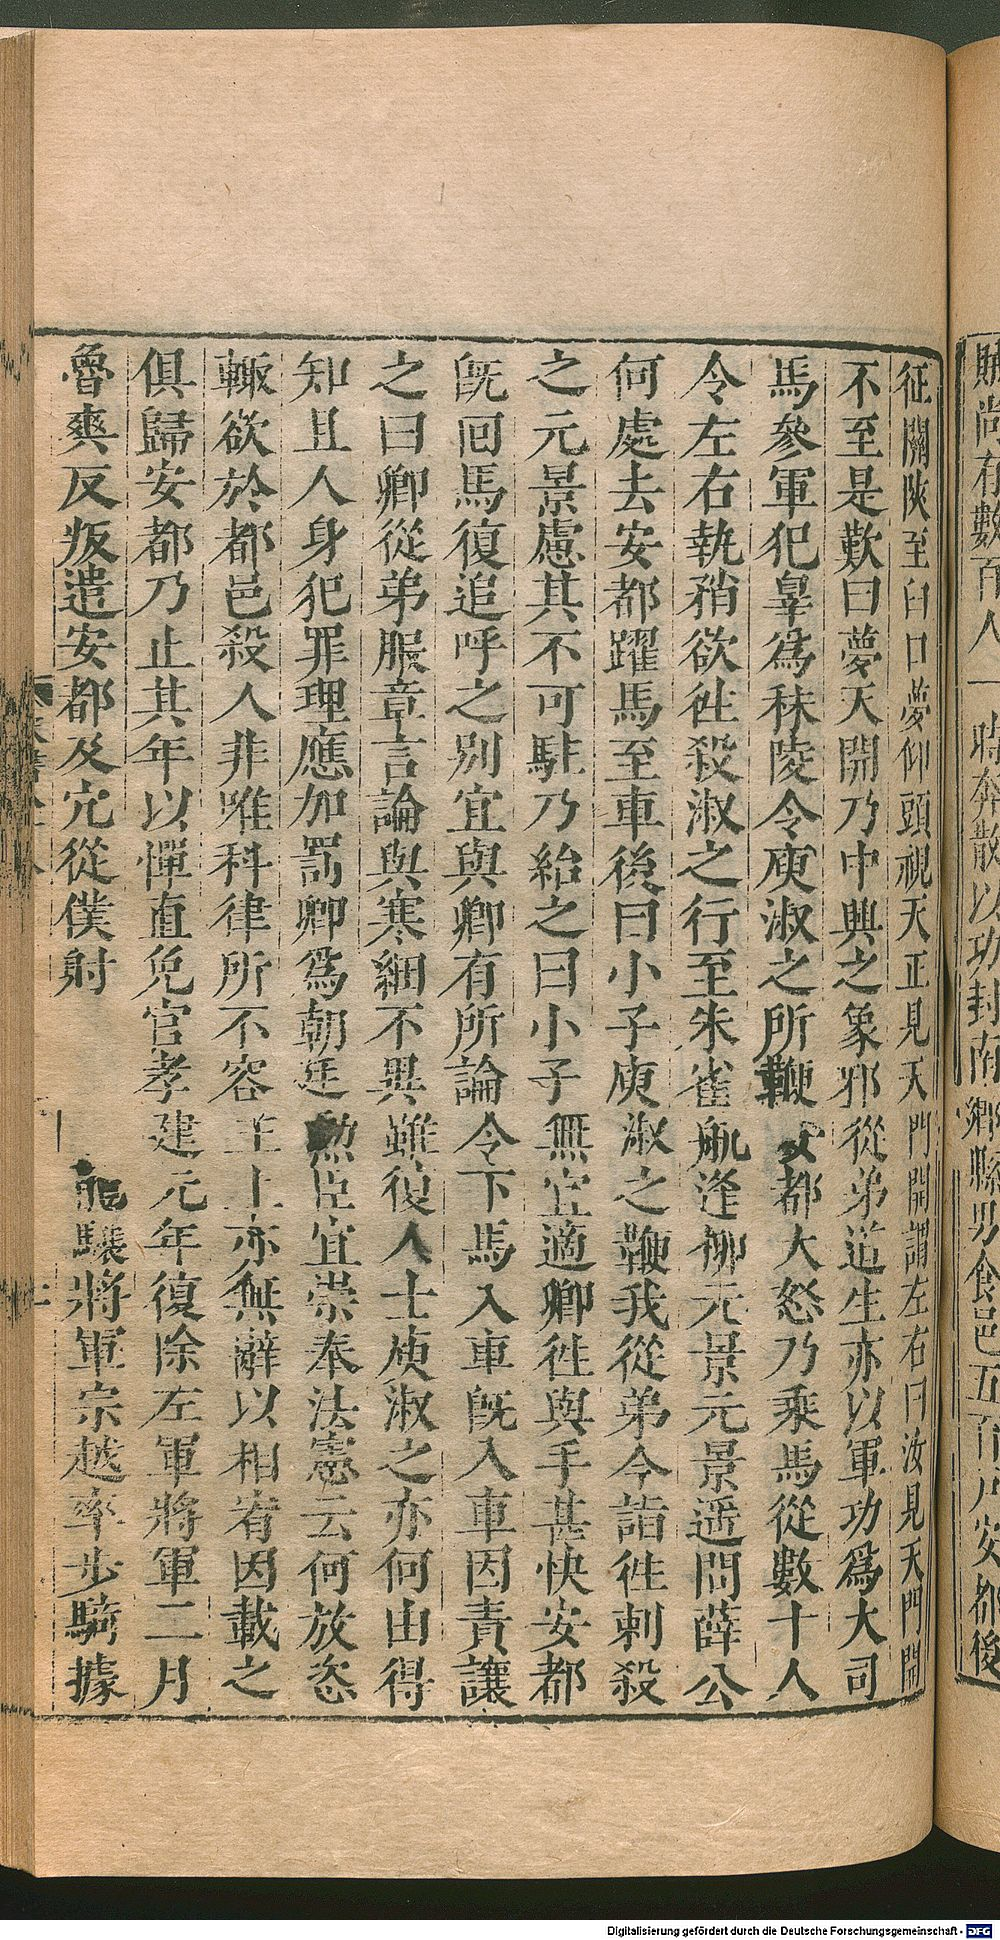 賊尚有數百人一時奔散以功封南鄉縣男食邑五百戶安都後
征關陝至臼口夢仰頭視天正見天門開謂左右曰汝見天門開
不至是歎曰夢天開乃中興之象邪從弟道生亦以軍功爲大司
馬參軍犯辠爲秣陵令庾淑之所鞭安都大怒乃乘馬從數十人
令左右執矟欲徃殺淑之行至朱雀航逢柳元景元景遥問薛公
何處去安都躍馬至車後曰小子庾淑之鞭我從弟今詣徃刺殺
之元景慮其不可駐乃紿之曰小子無宜適卿徃與手甚快安都
旣回馬復追呼之别宜與卿有所論令下馬入車旣入車因責讓
之曰卿從弟服章言論與寒細不異雖復人士庾淑之亦何由得
知且人身犯罪理應加罰卿爲朝廷勲臣宜崇奉法憲云何放恣
輙欲於都邑殺人非唯科律所不容主上亦無辭以相宥因載之
俱歸安都乃止其年以憚直免官孝建元年復除左軍將軍二月
魯爽反叛遣安都及冗從僕射龍驤將軍宗越率步騎據
Digitalisierung gefördert durch die Deutsche Forschungsgemeinschaft - DFG